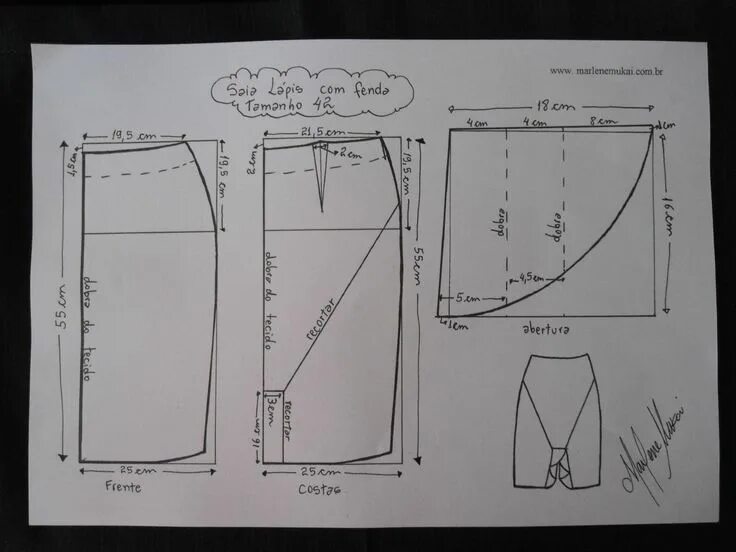 www. marlenemukai.com.br
Saia Lápis com fenda
Tamanho 42
19,5 cm
1,5cm
19,5 cm
55 cm
dobra do tecido
25 cm
Frente
21,5 cm
2 cm
2 cm
19,5 cm
55 cm
dobra do tecido
recortar
recortar
3cm
16 cm
25 cm
Costas
18 cm
4 cm
4 cm
8 cm
1cm
dobra
dobra
16 cm
4,5 cm
5 cm
1cm
abertura
Marlene Mukai